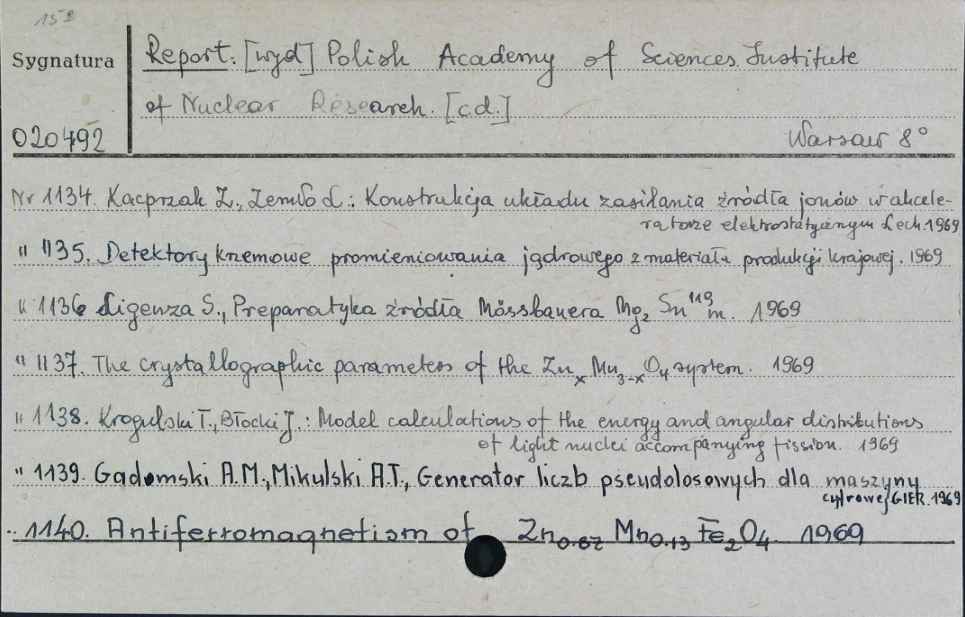 15
Sygnatura
Report. [wyd] Polish Academy of Sciences Institute
of Nuclear Research. [c.d.]
020492
Warsaw 8°
Nr 1134. Kacprzak Z., : Konstrukcja układu zasilania źródła jonów w akcele-
ratorze elektrostatycznym Lech 1969
" 1135. Detektory krzemowe promieniowania jądrowego z materiału produkcji krajowej. 1969
" 1136 Ligenza S., Preparatyka źródła Mössbauera Mg₂ Sn¹¹⁹m. 1969
" 1137. The crystallographic parameters of the ZnₓMn₃₋ₓO₄ system. 1969
" 1138. Krogulski T., Błocki J.: Model calculations of the energy and angular distributions
of light nuclei accompanying fission. 1969
" 1139. Gadomski A.M., Mikulski A.T., Generator liczb pseudolosowych dla maszyny
cyfrowej GIER. 1969
" 1140. Antiferromagnetism of Zn₀.₈₇ Mn₀.₁₃ Fe₂O₄. 1969